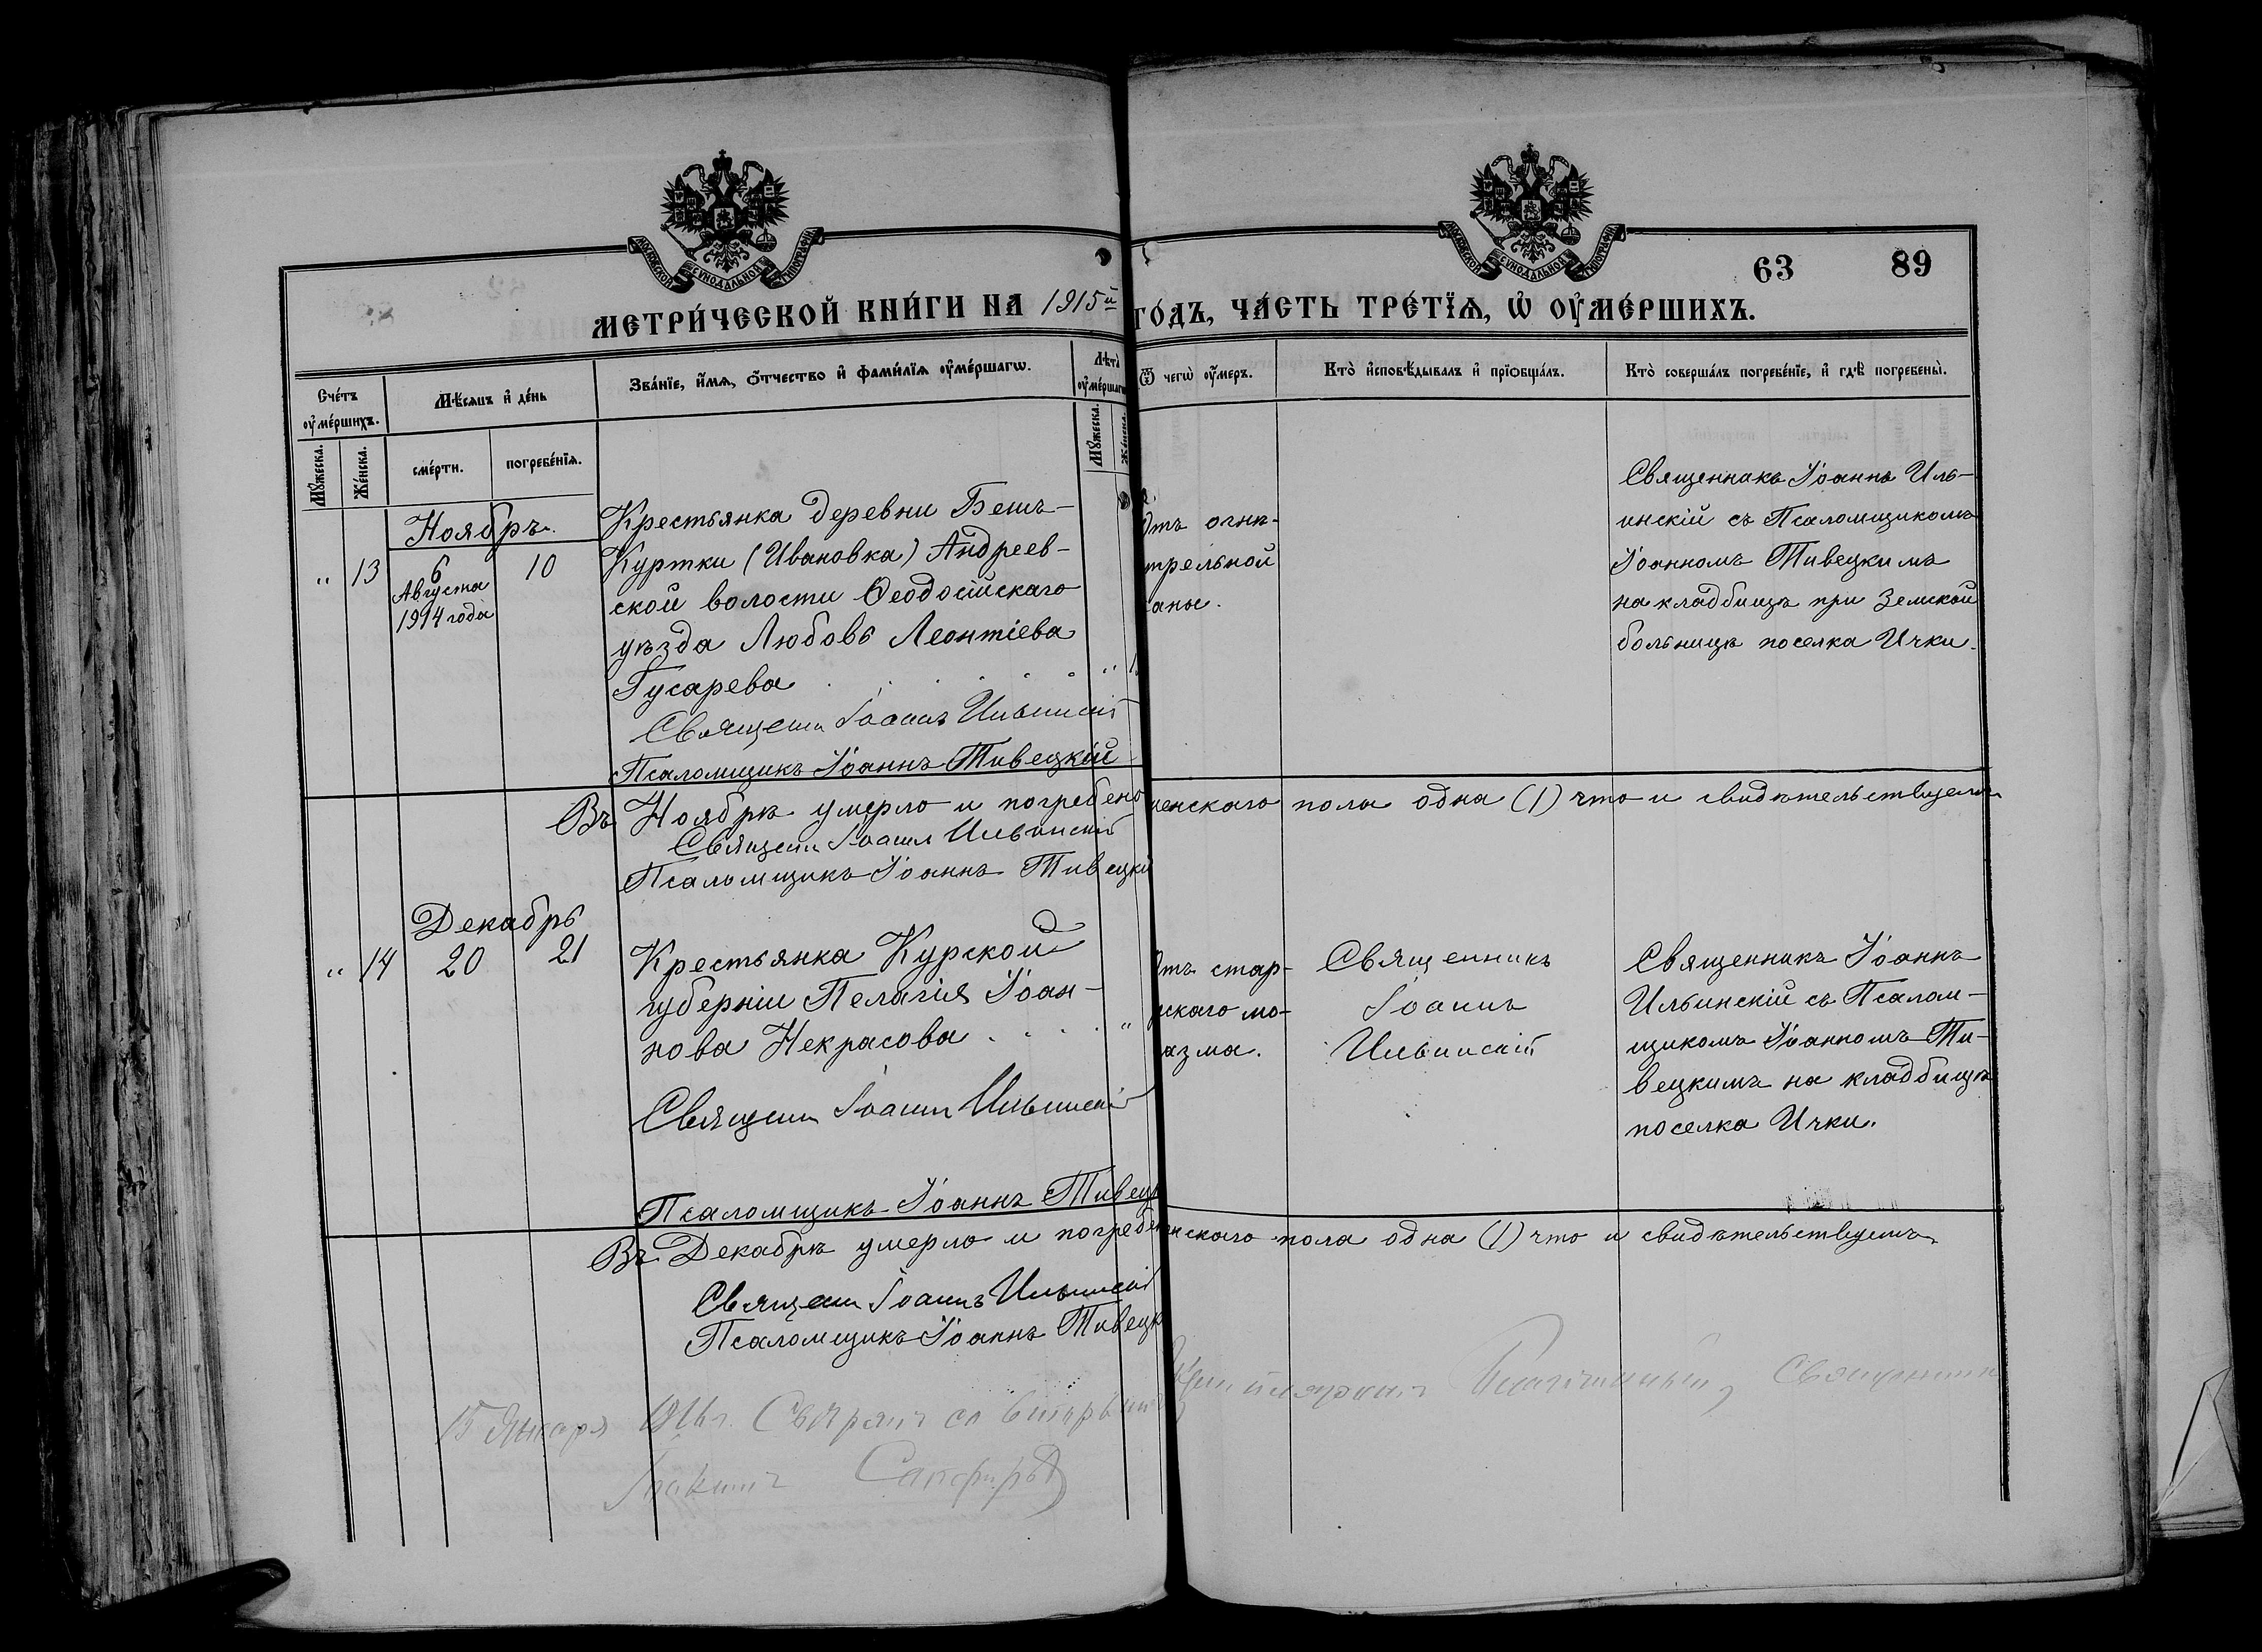 МОСКОВСКОЙ СѴНОДАЛЬНОЙ ТИПОГРАФІИ
МОСКОВСКОЙ СѴНОДАЛЬНОЙ ТИПОГРАФІИ
63 89
МЕТРИ́ЧЕСКОЙ КНИ́ГИ НА 1915й
ГО́ДЪ, ЧА́СТЬ ТРЕ́ТЇѦ, Ѡ҆ ОУ҆МЕ́РШИХЪ.
Сче́тъ оу҆ме́ршихъ.
Мꙋ́жеска.
Же́нска.
Мѣ́сѧцъ и҆ де́нь
сме́рти.
погребе́нїѧ.
Зва́нїе, и҆́мѧ, о҆́тчество и҆ фами́лїѧ оу҆ме́ршагѡ.
Лѣ́та оу҆ме́ршагѡ
Мꙋ́жеска.
Же́нска.
Ѿ чегѡ̀ оу҆́меръ.
Кто̀ и҆сповѣ́дывалъ и҆ прїѡбща́лъ.
Кто̀ соверша́лъ погребе́нїе, и҆ гдѣ̀ погребены̀.
Ноябрь.
" 13
6
Августа
1914 года
10
Крестьянка деревни Бешъ-
Куртки (Ивановка) Андреев-
ской волости Ѳеодосійскаго
уѣзда Любовь Леонтіева
Гусарева . . . . . . "
Священн Іоаннъ Ильинскій
Псаломщикъ Іоаннъ Тивецкій
Отъ огне-
трельной
раны.
Священникъ Іоаннъ Иль-
инскій съ Псаломщикомъ
Іоанномъ Тивецкимъ
на кладбищѣ при Земской
больницѣ поселка Ички.
Въ Ноябрѣ умерло и погребено женскаго пола одна (1) что и свидѣтельствуемъ
Священн Іоаннъ Ильинскій
Псаломщикъ Іоаннъ Тивецкій
Декабрь
" 14 20 21
Крестьянка Курской
губерніи Пелагія Іоан-
нова Некрасова . . . . "
Священн Іоаннъ Ильинскій
Псаломщикъ Іоаннъ Тивецк
Отъ стар-
ческаго ма-
разма.
Священникъ
Іоаннъ
Ильинскій
Священникъ Іоаннъ
Ильинскій съ Псалом-
щикомъ Іоанномъ Ти-
вецкимъ на кладбищѣ
поселка Ички.
Въ Декабрѣ умерло и погребено женскаго пола одна (1) что и свидѣтельствуемъ
Священн Іоаннъ Ильинскій
Псаломщикъ Іоаннъ Тивецк
15 Января 1916 г. Свѣрялъ со вторымъ экземпляромъ Благочинный, Священникъ